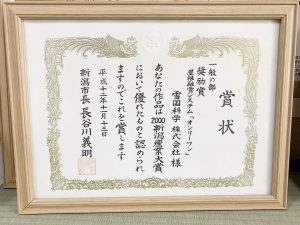 賞状
一般の部
奨励賞
屋根融雪システム「オンリーワン」
雪国科学 株式会社 様
あなたの作品は2000新潟産業大賞
において優れたものと認められ
ますのでこれを賞します
平成十二年十一月十三日
新潟市長 長谷川義明